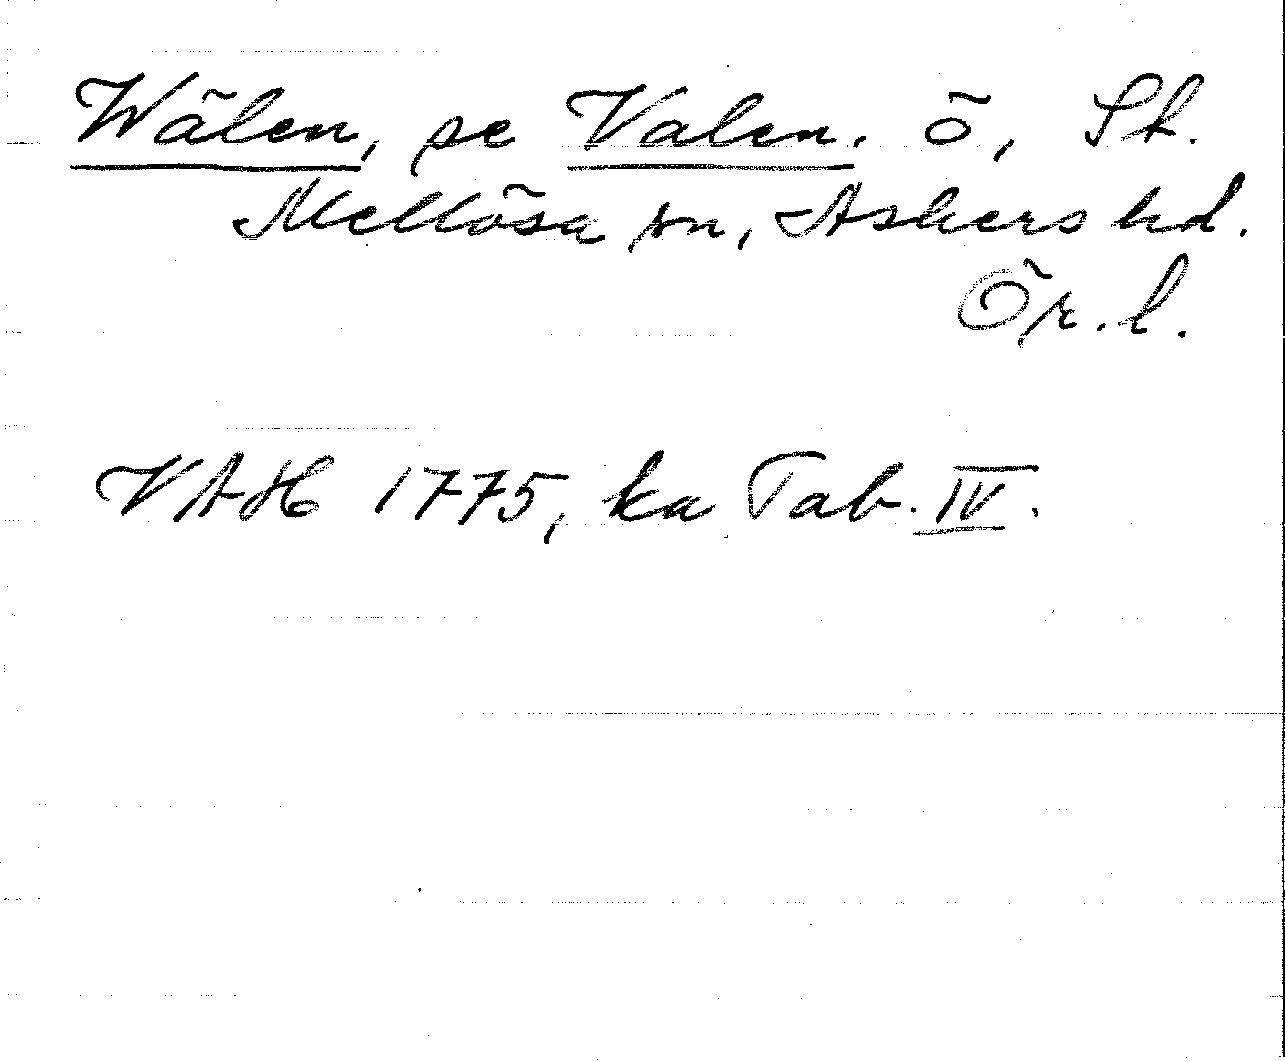 Wälen, se Valen. ö, St.
Mellösa sn, Askers hd.
Ör. l.
VAH 1775, ka Tab. IV.